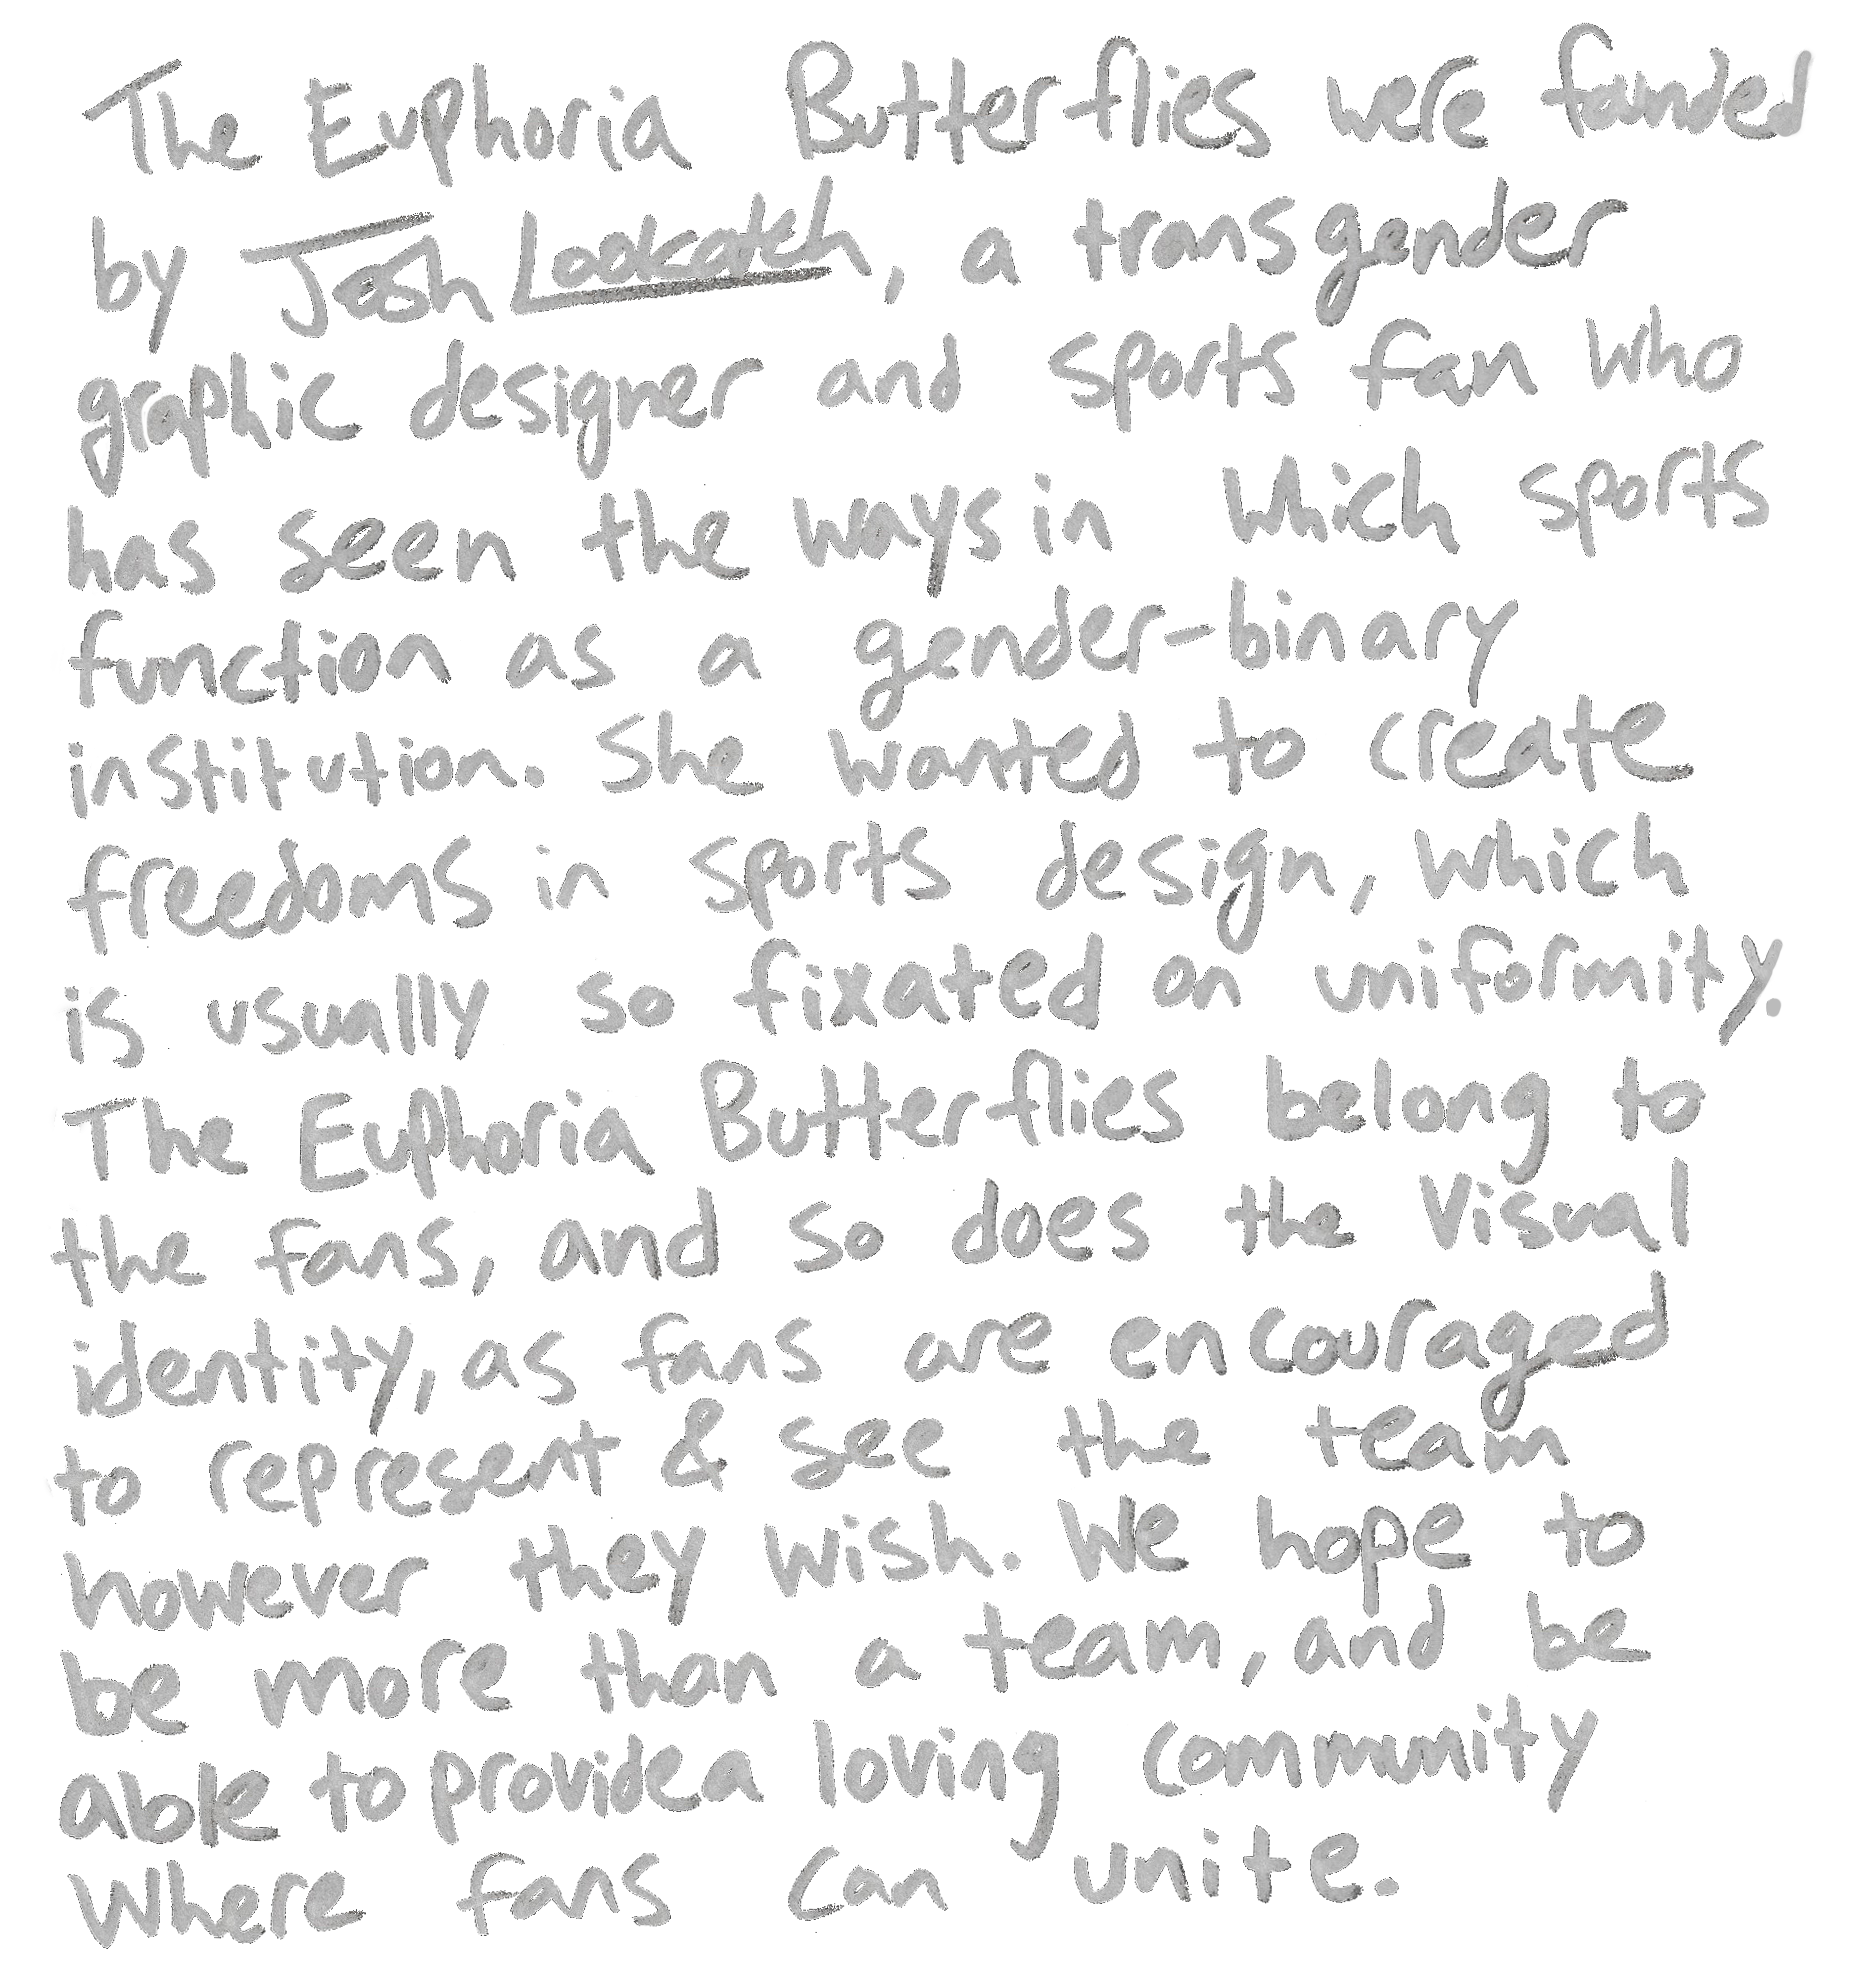 The Euphoria Butterflies were founded
by Josh Lookatch, a transgender
graphic designer and sports fan who
has seen the ways in which sports
function as a gender-binary
institution. She wanted to create
freedoms in sports design, which
is usually so fixated on uniformity.
The Euphoria Butterflies belong to
the fans, and so does the visual
identity, as fans are encouraged
to represent & see the team
however they wish. We hope to
be more than a team, and be
able to provide a loving community
where fans can unite.